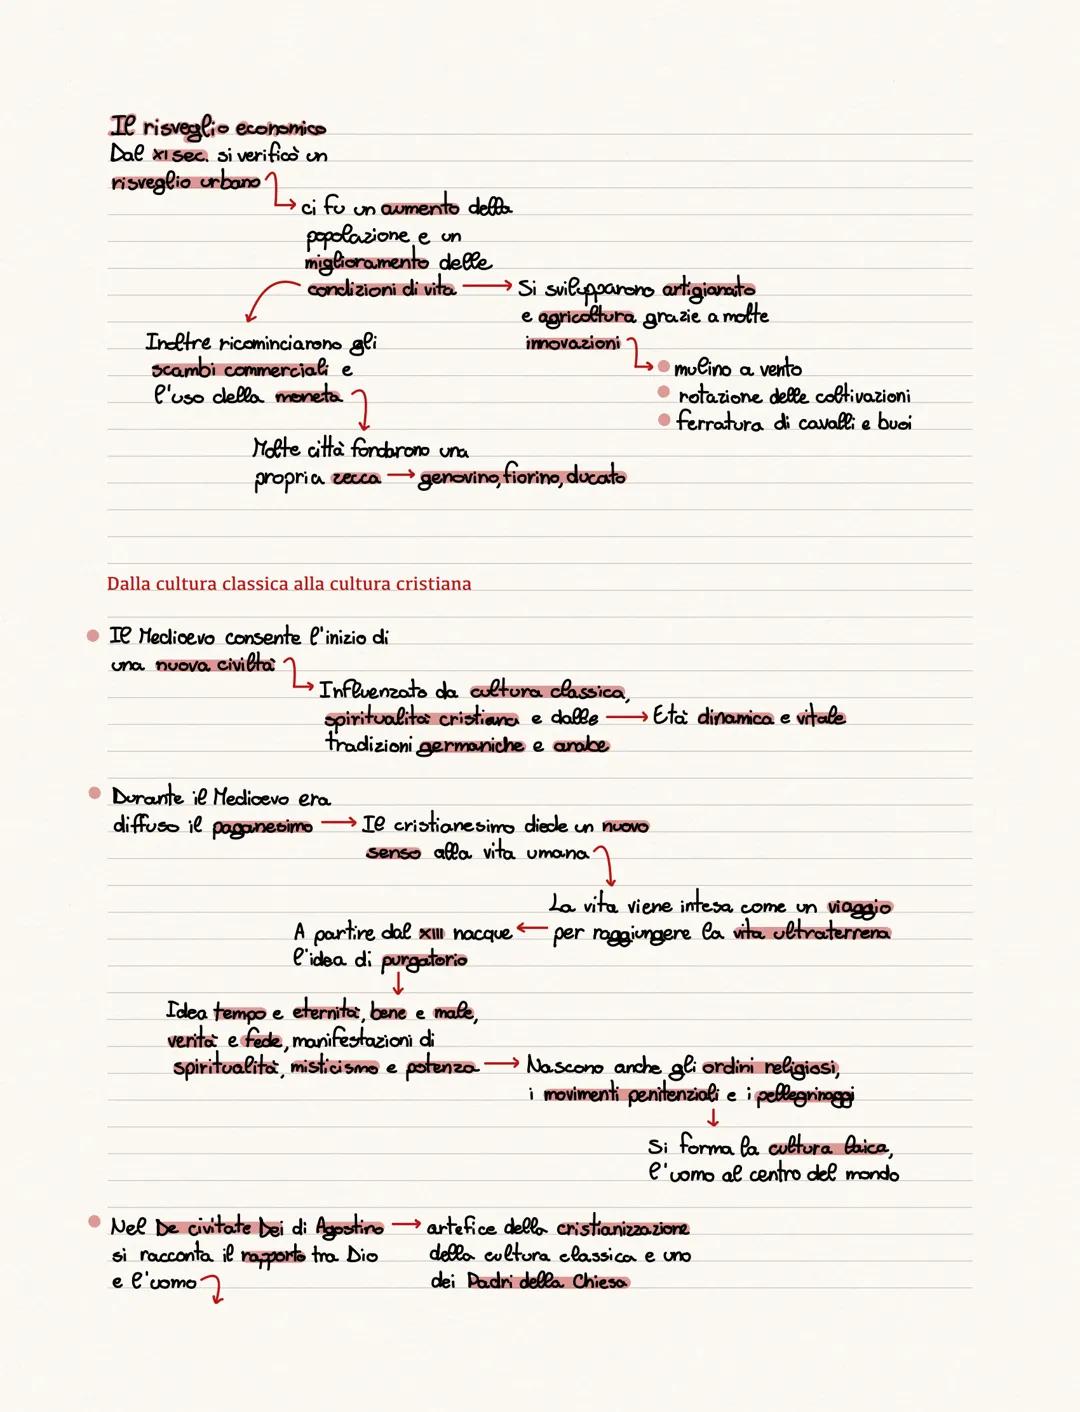 Il risveglio economico
Dal XI sec. si verificò un
risveglio urbano
ci fu un aumento della
popolazione e un
miglioramento delle
condizioni di vita → Si svilupparono artigianato
e agricoltura grazie a molte
innovazioni
Inoltre ricominciarono gli
scambi commerciali e
l'uso della moneta
mulino a vento
rotazione delle coltivazioni
ferratura di cavalli e buoi
Molte città fondarono una
propria zecca → genovino, fiorino, ducato
Dalla cultura classica alla cultura cristiana
Il Medioevo consente l'inizio di
una nuova civiltà
Influenzato da cultura classica,
spiritualità cristiana e dalle → Età dinamica e vitale
tradizioni germaniche e arabe
Durante il Medioevo era
diffuso il paganesimo → Il cristianesimo diede un nuovo
senso alla vita umana
La vita viene intesa come un viaggio
per raggiungere la vita ultraterrena
A partire dal XIII nacque
l'idea di purgatorio
Idea tempo e eternità, bene e male,
verità e fede, manifestazioni di
spiritualità, misticismo e potenza → Nascono anche gli ordini religiosi,
i movimenti penitenziali e i pellegrinaggi
Si forma la cultura laica,
l'uomo al centro del mondo
Nel De civitate Dei di Agostino → artefice della cristianizzazione
si racconta il rapporto tra Dio
e l'uomo
della cultura classica e uno
dei Padri della Chiesa